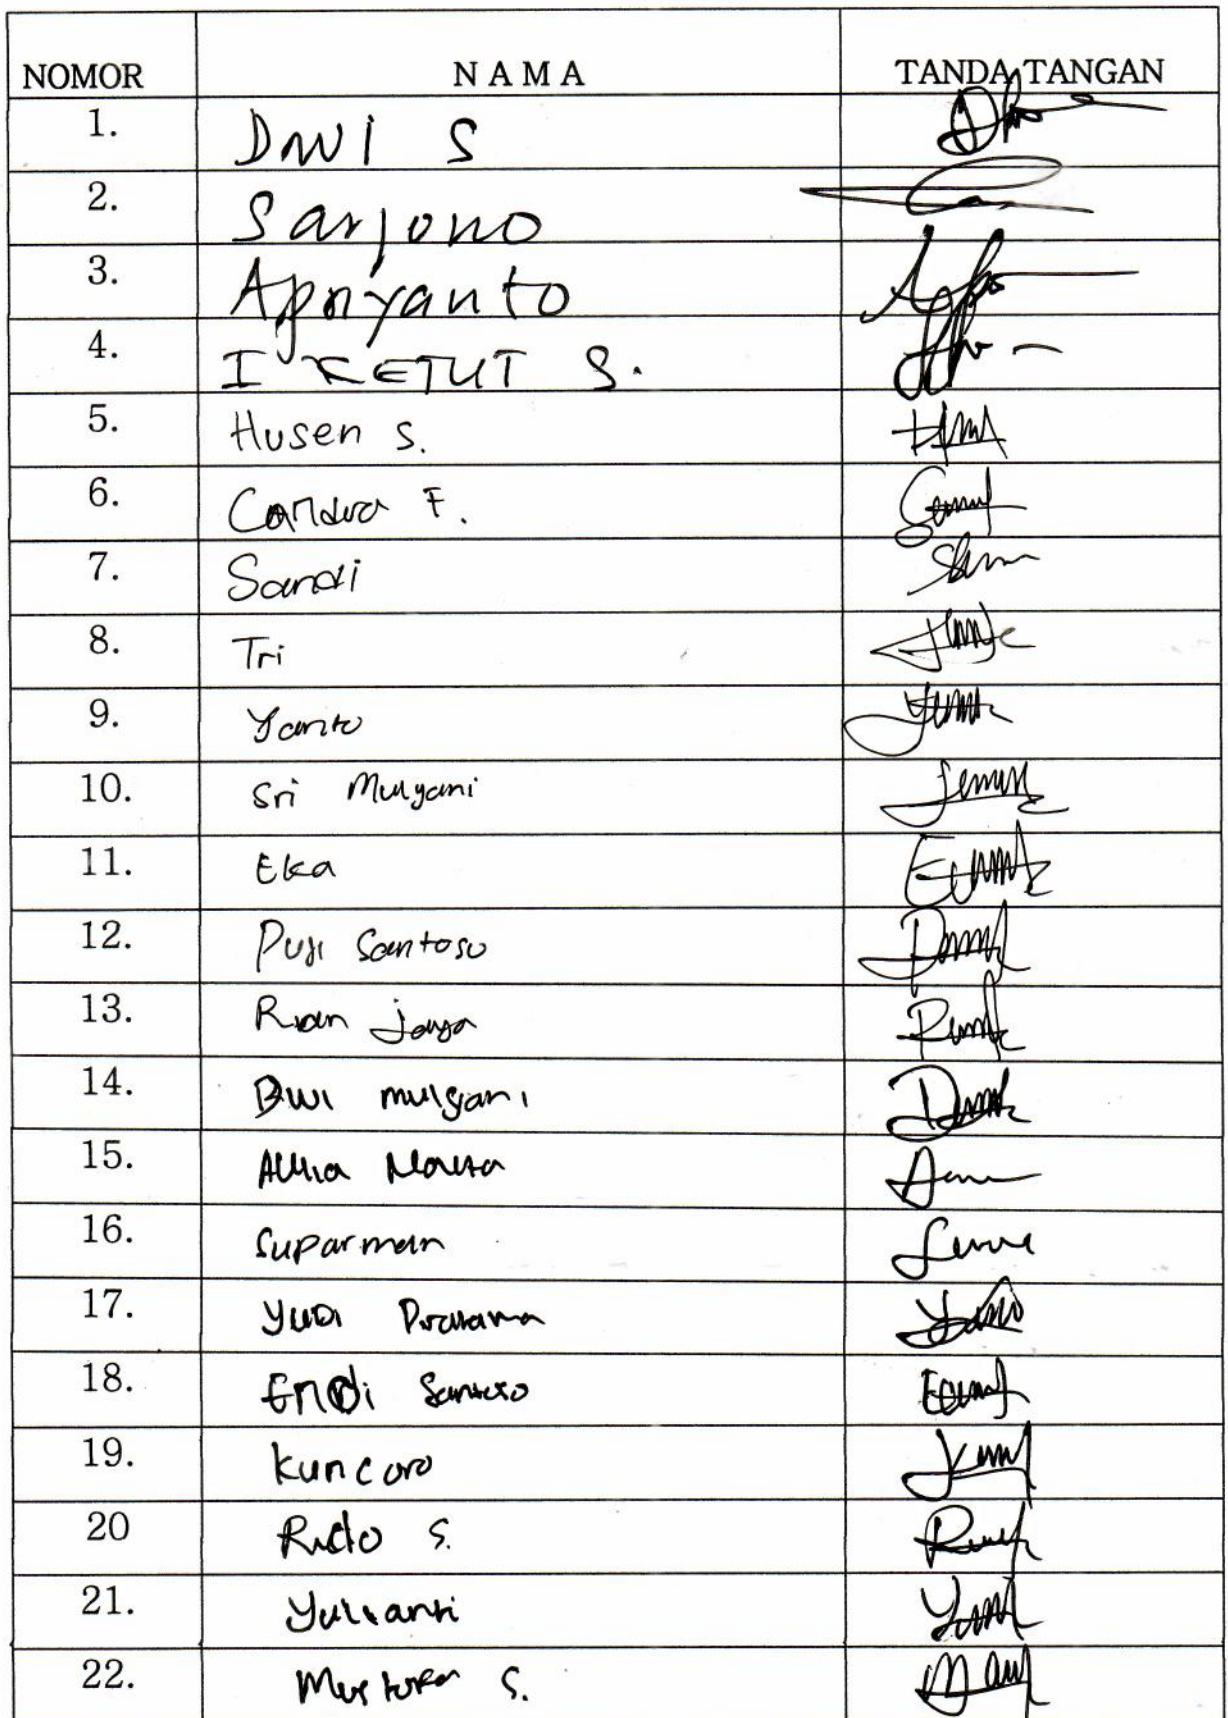 NOMOR N A M A TANDA TANGAN
1. DWI S
2. Sarjono
3. Apriyanto
4. I KETUT S.
5. Husen S.
6. Candra F.
7. Sandi
8. Tri
9. Yanto
10. Sri Mulyani
11. Eka
12. Puji Santoso
13. Rian jaya
14. Dwi mulyani
15.
16. Suparman
17. Yudi Pratama
18. Endi Santoso
19. Kuncoro
20 Rido S.
21. Yulianti
22. S.